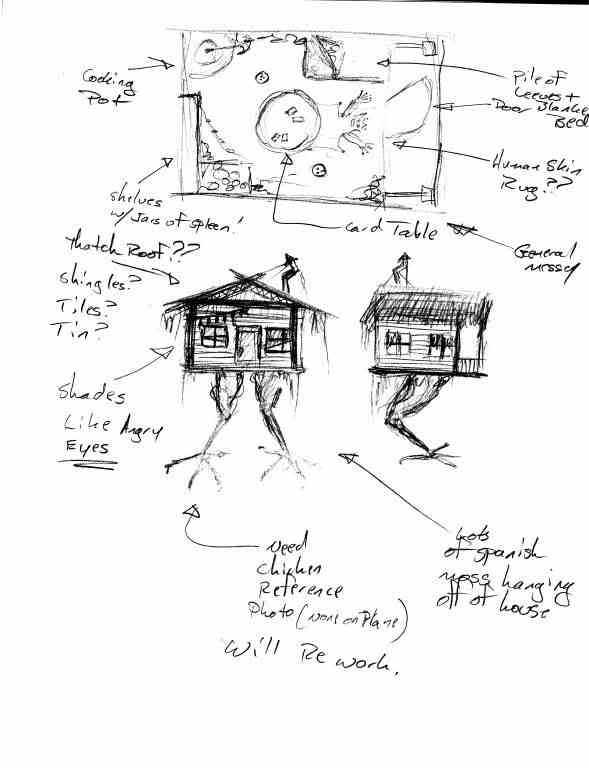 Cooking
Pot
Pile of
Leeves +
Door Blanket
Bed
Human Skin
Rug??
Shelves
w/ Jars of spleen!
Card Table
General
messy
Thatch Roof??
Shingles?
Tiles?
Tin?
Shades
Like Angry
Eyes
Lots
of spanish
moss hanging
off of house
Need
Chicken
Reference
Photo (none on Plane)
Will Re work.